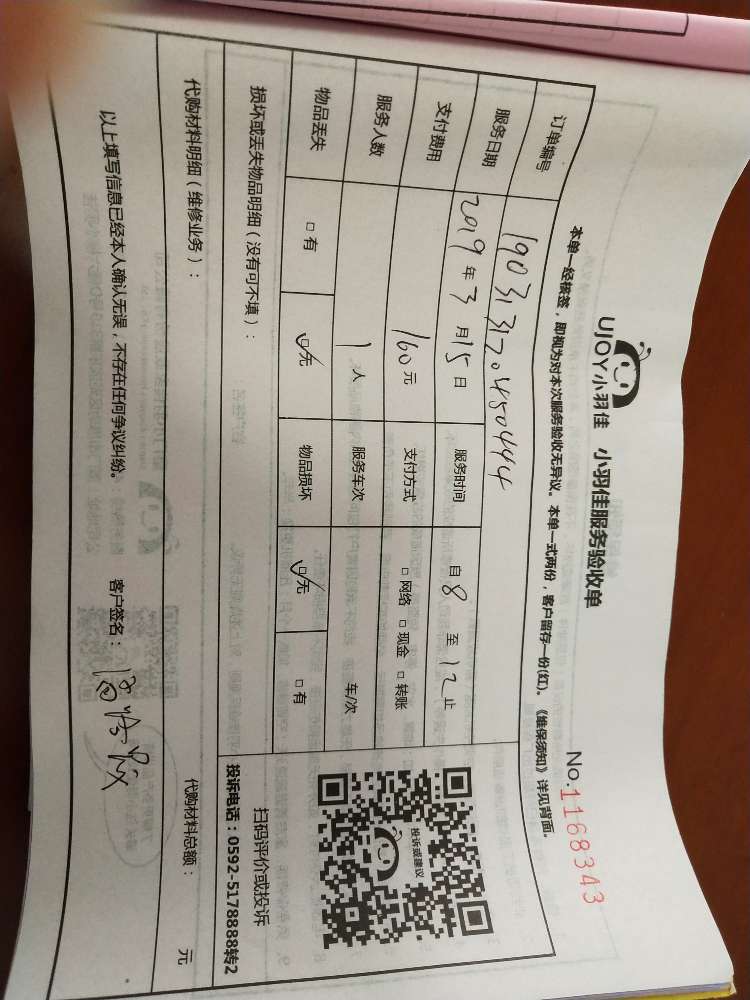 UJOY小羽佳 小羽佳服务验收单 No.1168343
本单一经核签，即视为对本次服务验收无异议。本单一式两份，客户留存一份(红)。《维保须知》详见背面。
订单编号 190313120450444
服务日期 2019年3月15日 服务时间 自8至12止
支付费用 160元 支付方式 □网络 □现金 □转账
服务人数 1人 服务车次 车/次
物品丢失 □有 ☑无 物品损坏 ☑无 □有
损坏或丢失物品明细（没有可不填）：
投诉或建议
扫码评价或投诉
投诉电话：0592-5178888转2
代购材料明细（维修业务）： 代购材料总额： 元
以上填写信息已经本人确认无误，不存在任何争议纠纷。 客户签名：